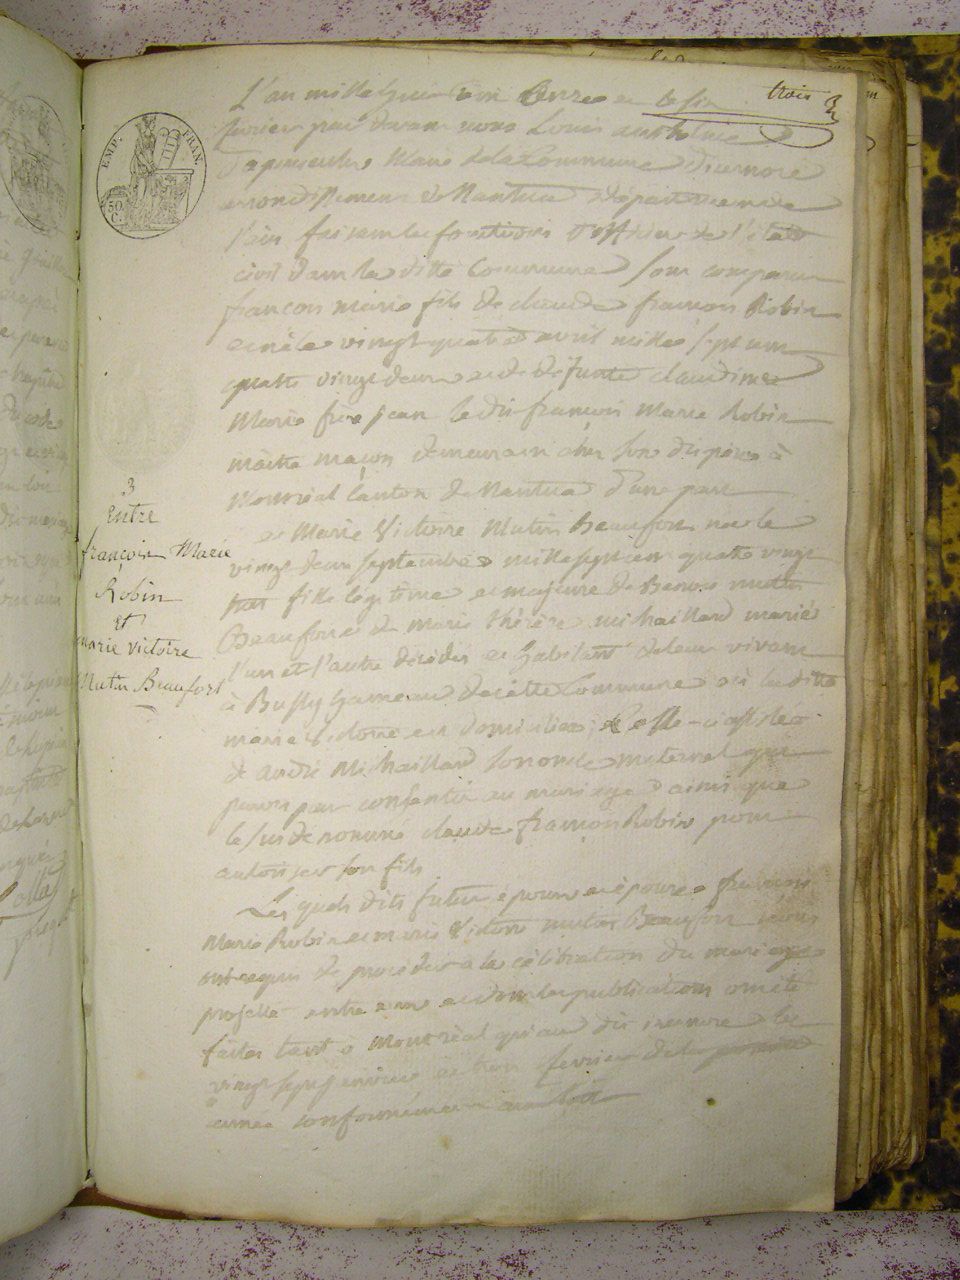 trois 3
L'an mille huit cent onze et le six
fevrier par devant nous Louis anthelme
maire de la Commune d'izernore
arrondissement de Nantua département de
l'ain faisant les fonctions d'officier de l'état
civil dans la ditte Commune sont comparu
françois marie fils de claude françois Robin
et né le vingt quatre avril mille sept cent
quatre vingt deux et de défunte claudine
Marie frere jean le dit françois Marie Robin
maitre maçon demeurant chez son dit père à
Montréal canton de Nantua d'une part
et Marie Victoire Mutin Beaufort née le
vingt deux septembre mille sept cent quatre vingt
fille légitime et majeure de mutin
Beaufort et de marie thérèse michaillard mariés
l'un et l'autre décédés et habitant de leur vivant
à Bussy hameau de cette Commune où la ditte
marie Victoire est domiciliée assistée
de andré Michaillard son oncle maternel qui
pour consentir au mariage ainsi que
le susdenommé claude françois Robin pour
autoriser son fils
Lesquels dits futur époux et épouse françois
Marie Robin et marie Victoire mutin Beaufort
ont requis de procéder à la célébration du mariage
projetté entre eux et dont les publications ont été
faites tant à Montréal qu'au dit izernore les
vingt sept janvier et trois fevrier de la
année conformément aux lois
3
Entre
françois Marie
Robin
et
marie victoire
Mutin Beaufort
EMP. FRAN.
50
C.